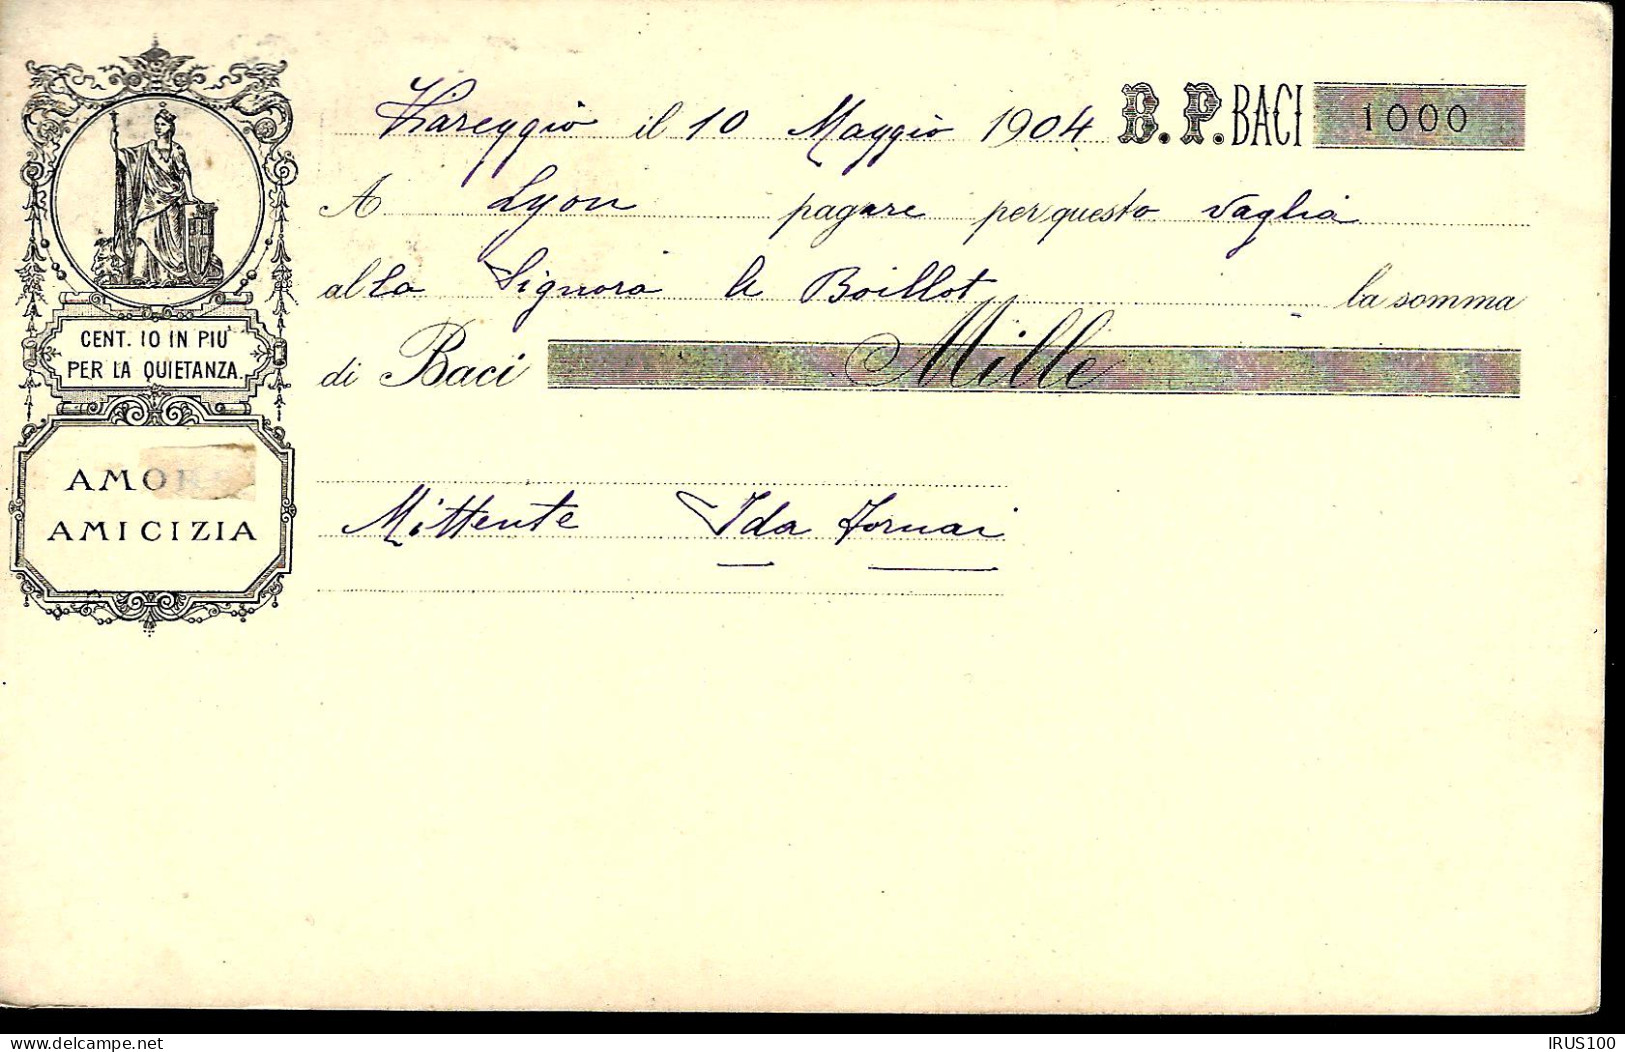 Viareggio il 10 Maggio 1904 B. P. BACI 1000
A Lyon pagare per questo vaglia
alla Signora Boillot la somma
di Baci Mille
CENT. 10 IN PIU'
PER LA QUIETANZA.
AMOR
AMICIZIA
Mittente Ida Fornari
© IRUS100